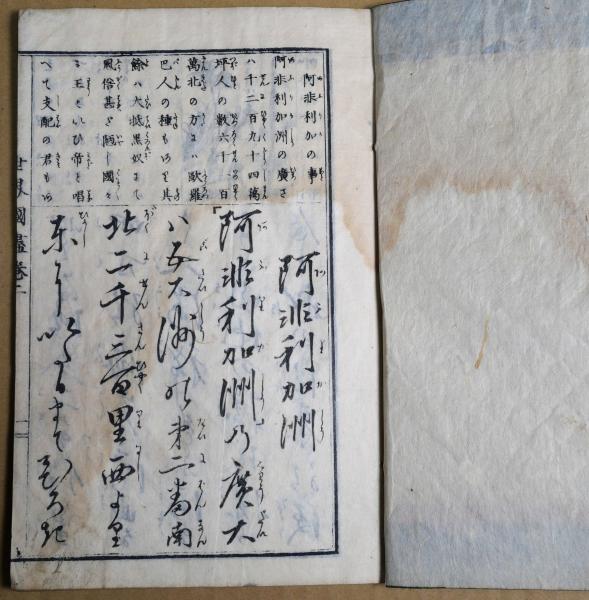 阿非利加の事
阿非利加洲の廣さ
八千二百九十四萬
坪人の數六千一百
萬北の方には歐羅
巴人の種もあり其
餘は大抵黒奴にて
風俗甚だ陋し國々
に王といひ帝と唱
へて支配の君もあ
阿非利加洲
「阿非利加洲」の廣大
八五大洲の第二番南
北二千三百里西より
東にいたるまでひろき
世界國盡卷二